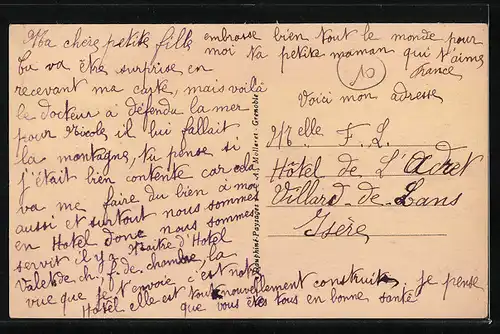 Ma chère petite fille
tu va être surprise en
recevant ma carte, mais voilà
le docteur à défendu la mer
pour Nicole il lui fallait
la montagne, tu pense si
j'était bien contente car cela
va me faire du bien à moi
aussi et surtout nous sommes
en Hotel donc nous sommes
servit il y a Maitre d'Hotel
Valet de ch, f. de chambre, la
vue que je t'envoie c'est notre
Hotel elle est tout nouvellement construite, je pense
que vous êtes tous en bonne santé
embrasse bien tout le monde pour
moi ta petite maman qui t'aime
France
10
Voici mon adresse
Melle F. L.
Hôtel de L'Adret
Villard-de-Lans
Isère
Dauphiné-Paysages A. Mollaret - Grenoble